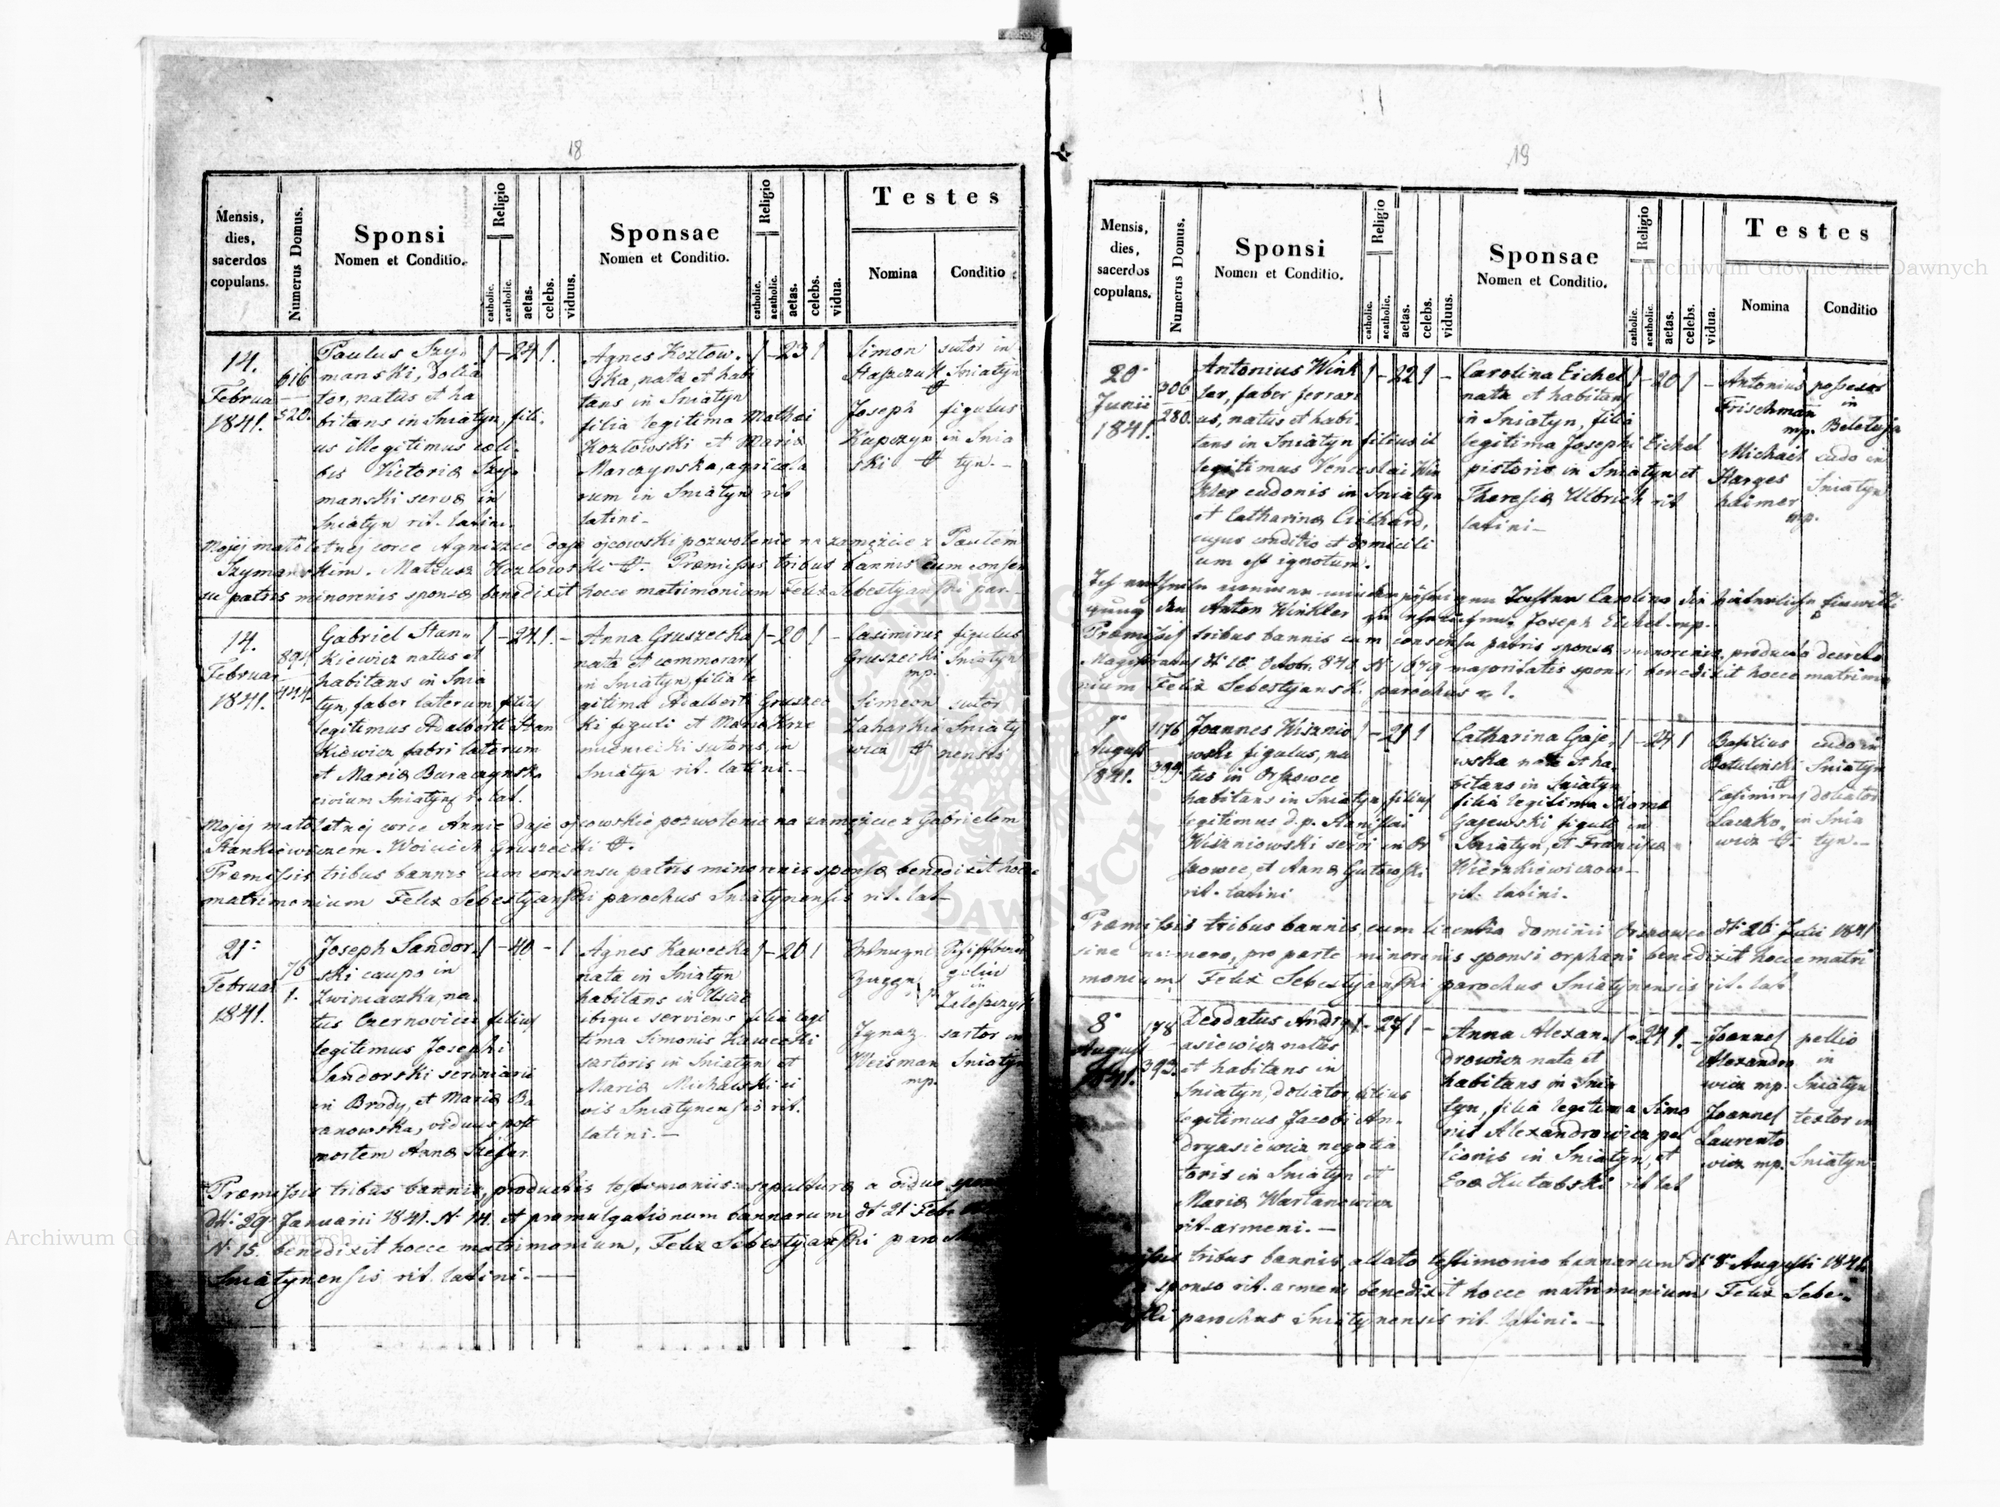 18
Mensis, dies, sacerdos copulans.
Numerus Domus.
Sponsi
Nomen et Conditio.
Religio
catholic.
acatholic.
aetas.
celebs.
viduus.
Sponsae
Nomen et Conditio.
Religio
catholic.
acatholic.
aetas.
celebs.
vidua.
Testes
Nomina
Conditio
14.
Februar
1841.
616
520.
Paulus Szy,
manski, dolia
tor, natus et ha
bitans in Sniatyn, fili,
us illegitimus cœli,
bis Victoriæ Szy,
manski servæ in
Sniatyn rit. latini.
1 - 24 1.
Agnes Kozlow,
ska, nata et habi
tans in Sniatyn
filia legitima Mathei
Kozlowski et Mariæ
Marczynska, agricola
rum in Sniatyn rit
latini -
1 - 23 1
Simon
Staszczuk
Joseph
Kupczyn
ski
sutor in
Sniatyn
figulus
in Snia
tyn. -
Mojej małoletnej corce Agnieszce daję ojcowski pozwolenie na zamęzcie z Pawłem
Szymanskim. Mateusz Kozlowski Præmissis tribus bannis cum consen
su patris minorenis sponsæ benedixit hocce matrimonium Felix Sebestyanski par -
14.
Februar
1841.
891
444
Gabriel Stan,
kiewicz natus et
habitans in Snia
tyn, faber laterum filius
legitimus Adalberti Stan
kiewicz, fabri laterum
et Mariæ Buraczynska
civium Sniatyn r. lat.
1 - 24 1. -
Anna Gruszecka
nata et commorans
in Sniatyn, filia le
gitima Adalberti Gruszec
ki figuli et Mariæ Krze
mieniecki sutoris, in
Sniatyn rit. latini. -
1 - 20 1 -
Casimirus
Gruszecki
mp.
Simeon
Zaharkie
wicz
figulus
Sniatyn
sutor
Sniaty
nensis
Mojej małoletnej corce Annie daję ojcowskie pozwolenie na zamęzcie z Gabrielem
Stankiewiczem. Woiciech Gruszecki
Præmissis tribus bannis cum consensu patris minorennis sponsæ benedixit hocce
matrimonium Felix Sebestyanski parochus Sniatynensis rit. lat
21
Februar
1841.
76
1.
Joseph Sandor,
ski caupo in
Zwiniaczka, na,
tus Czernovice filius
legitimus Josephi
Sandorski scriniarii
in Brody, et Mariæ Ba
ranowska, viduus post
mortem Annæ Stefan
1 - 40 - 1
Agnes Kawecka
nata in Sniatyn
habitans in Uscie
ibique serviens filia legi
tima Simonis Kawecki
sartoris in Sniatyn et
Mariæ Michalski ci
vis Sniatynensis rit.
latini. -
1 - 26 1
Ignaz
Weisman
mp.
in
Zaleszczyk
sartor in
Sniatyn
Præmissis tribus bannis, productis testimoniis sepulturæ a viduo
ddt. 29 Januarii 1841. N. 14. et promulgationum bannorum dt 21 Febr
N. 15. benedixit hocce matrimonium, Felix Sebestyanski parochus
Sniatynensis rit. latini. -
19
Mensis, dies, sacerdos copulans.
Numerus Domus.
Sponsi
Nomen et Conditio.
Religio
catholic.
acatholic.
aetas.
celebs.
viduus.
Sponsae
Nomen et Conditio.
Religio
catholic.
acatholic.
aetas.
celebs.
vidua.
Testes
Nomina
Conditio
20
Junii
1841.
306
280.
Antonius Wink
ler, faber ferrari
us, natus et habi,
tans in Sniatyn filius il
legitimus Venceslai Win
kler cudonis in Sniatyn
et Catharinæ
cujus conditio et domicili
um est ignotum.
1 - 22 1 -
Carolina Eichel
nata et habitans
in Sniatyn, filia
legitima Josephi Eichel
pistoris in Sniatyn et
Theresiæ Ulbrich rit
latini -
1 - 20 1 -
Antonius
Frischman
mp.
Michael
Harges
heimer
mp.
possessor
in
Beleluja
cudo in
Sniatyn
den Anton Winkler Joseph Eichel mp.
Præmissis tribus bannis cum consensu patris sponsæ minorenis, producto decreto
Magistratus dt 16 Octobr. 840 N 1679 majoritatis sponsi benedixit hocce matrimo
nium Felix Sebestyanski parochus
1
August
1841.
1176
399.
Joannes Wisznio
wski figulus, na
tus in Orszowce
habitans in Sniatyn, filius
legitimus d. p. Stanislai
Wiszniowski servi in Or
szowce, et Annæ Gutowski
rit. latini
1 - 21 1
Catharina Gaje,
wska nata et ha,
bitans in Sniatyn
filia legitima Thoma
Gajewski figuli in
Sniatyn, et Francisca
Wierzkiewiczow -
rit. latini.
1 - 24 1
Basilius
Botulinski
Casimirus
Laczko,
wicz
cudo in
Sniatyn
doliator
in Snia
tyn. -
Præmissis tribus bannis, cum licentia dominii Orszowce dt 26 Julii 1841
sine numero, pro parte minorenis sponsi orphani benedixit hocce matri
monium Felix Sebestyanski parochus Sniatynensis rit. lat.
8
August
1841.
178
393.
Deodatus Andry
asiewicz natus
et habitans in
Sniatyn, doliator, filius
legitimus Jacobi An,
dryasiewicz negotia
toris in Sniatyn et
Mariæ Wartanowicz
rit. armeni. -
1 - 27 1 -
Anna Alexan,
drowicz nata et
habitans in Snia
tyn, filia legitima Simo
nis Alexandrowicz pel
lionis in Sniatyn, et
Evæ Kutabski rit lat
1 - 24 1. -
Joannes
Alexandro
wicz mp.
Joannes
Laurento
wicz mp.
pellio
in
Sniatyn
textor in
Sniatyn
tribus bannis, allato testimonio bannorum dt 8 Augusti 1841.
sponso rit. armeni benedixit hocce matrimonium Felix Sebe,
parochus Sniatynensis rit. latini. -
Archiwum Główne Akt Dawnych
Archiwum Główne Akt Dawnych